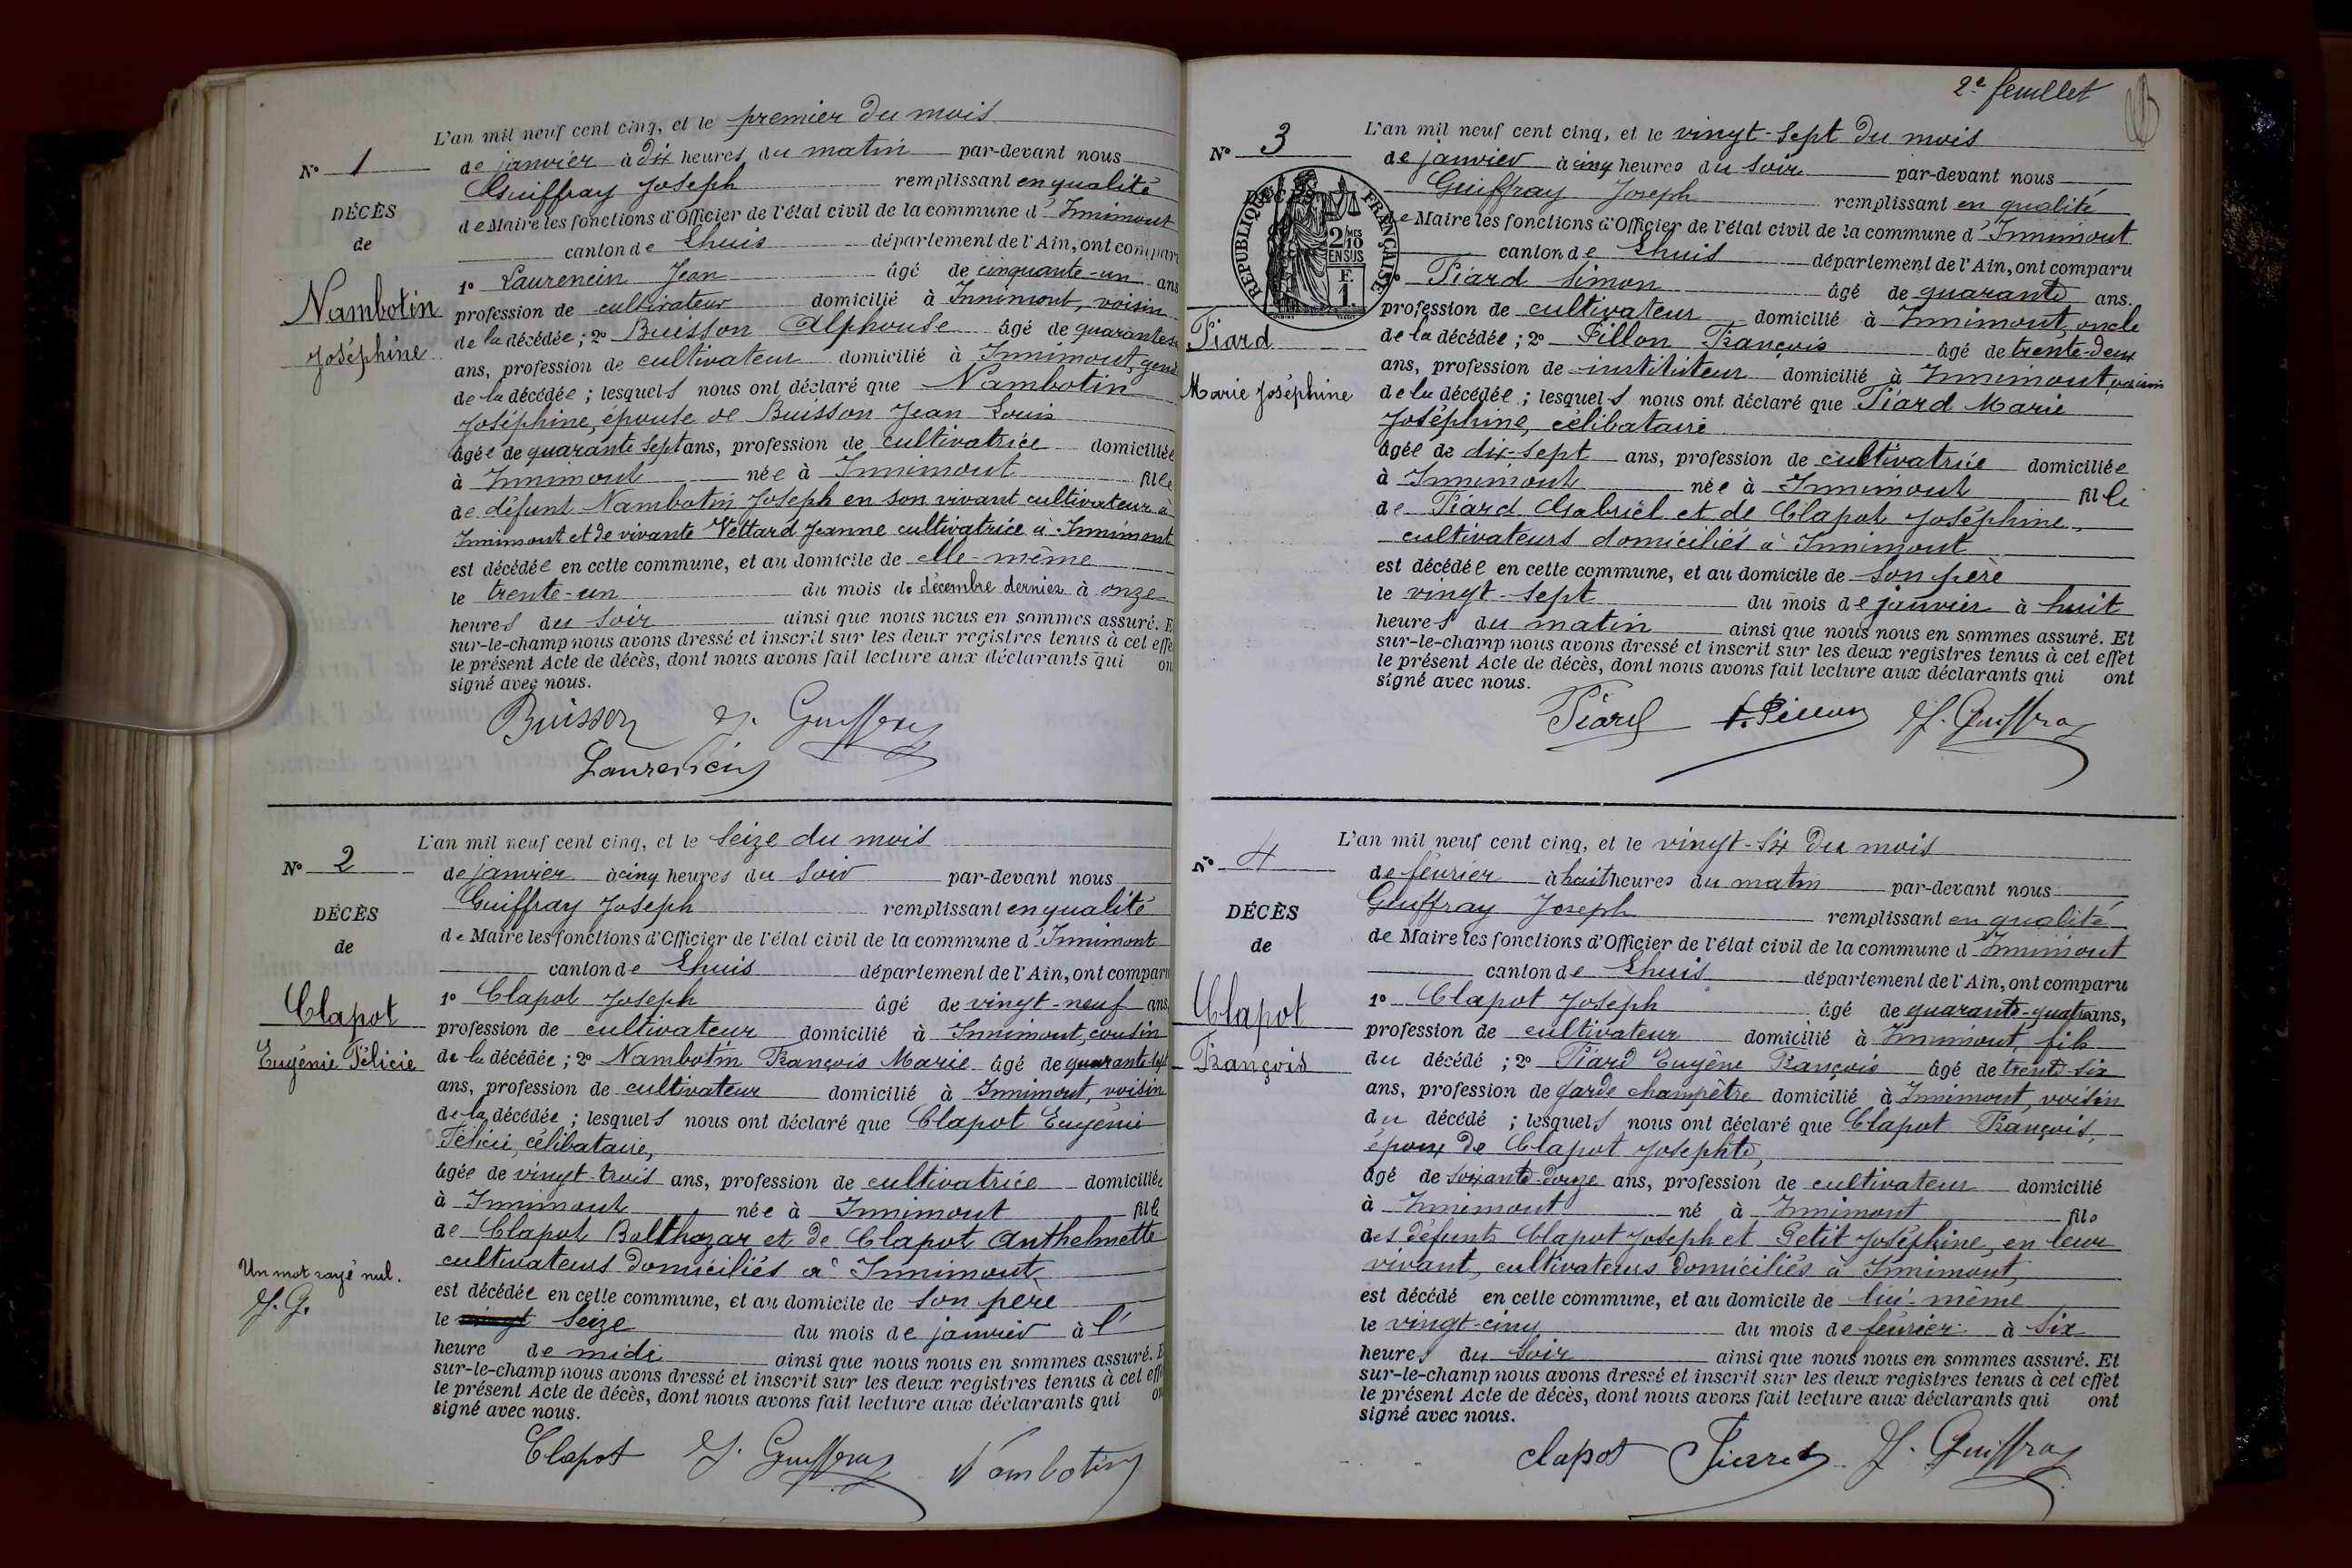 L'an mil neuf cent cinq, et le premier du mois
N° 1
de janvier à dix heures du matin par-devant nous
Guiffray Joseph remplissant en qualité
DÉCÈS
de Maire les fonctions d'Officier de l'état civil de la commune d'Innimont
de
canton de Lhuis département de l'Ain, ont compar
1° Laurencin Jean âgé de cinquante-un ans
Nambotin
profession de cultivateur domicilié à Innimont, voisin
de la décédée ; 2° Buisson Alphonse âgé de
Joséphine
ans, profession de cultivateur domicilié à Innimont,
de la décédée ; lesquels nous ont déclaré que Nambotin
Joséphine, épouse de Buisson Jean Louis
âgée de quarante sept ans, profession de cultivatrice domiciliée
à Innimont née à Innimont fille
de défunt Nambotin Joseph en son vivant cultivateur à
Innimont et de vivante Vettard Jeanne cultivatrice à Innimont
est décédée en cette commune, et au domicile de elle-même
le trente-un du mois de décembre dernier à onze
heures du soir ainsi que nous nous en sommes assuré. E
sur-le-champ nous avons dressé et inscrit sur les deux registres tenus à cet effe
le présent Acte de décès, dont nous avons fait lecture aux déclarants qui on
signé avec nous.
Buisson J. Guiffray
Laurencin
L'an mil neuf cent cinq, et le seize du mois
N° 2
de janvier à cinq heures du soir par-devant nous
Guiffray Joseph remplissant en qualité
DÉCÈS
de Maire les fonctions d'Officier de l'état civil de la commune d'Innimont
de
canton de Lhuis département de l'Ain, ont comparu
1° Clapot Joseph âgé de vingt-neuf ans,
Clapot
profession de cultivateur domicilié à Innimont, cousin
Eugénie Félicie
de la décédée ; 2° Nambotin François Marie âgé de quarante-sept
ans, profession de cultivateur domicilié à Innimont, voisin
de la décédée ; lesquels nous ont déclaré que Clapot Eugénie
Félicie, célibataire,
âgée de vingt-trois ans, profession de cultivatrice domiciliée
à Innimont née à Innimont fille
de Clapot Balthazar et de Clapot Anthelmette
cultivateurs domiciliés à Innimont
Un mot rayé nul.
J. G.
est décédée en cette commune, et au domicile de son père
le vingt seize du mois de janvier à l'
heure de midi ainsi que nous nous en sommes assuré. E
sur-le-champ nous avons dressé et inscrit sur les deux registres tenus à cet effe
le présent Acte de décès, dont nous avons fait lecture aux déclarants qui on
signé avec nous.
Clapot J. Guiffray Nambotin
2e feuillet
L'an mil neuf cent cinq, et le vingt-sept du mois
N° 3
de janvier à cinq heures du soir par-devant nous
DÉCÈS
Guiffray Joseph remplissant en qualité
RÉPUBLIQUE FRANÇAISE
2/10 MES EN SUS
F. 1.
de Maire les fonctions d'Officier de l'état civil de la commune d'Innimont
canton de Lhuis département de l'Ain, ont comparu
1° Piard Simon âgé de quarante ans.
profession de cultivateur domicilié à Innimont, oncle
Piard
de la décédée ; 2° Pillon François âgé de trente-deux
ans, profession de instituteur domicilié à Innimont, voisin
Marie Joséphine
de la décédée ; lesquels nous ont déclaré que Piard Marie
Joséphine, célibataire
âgée de dix-sept ans, profession de cultivatrice domiciliée
à Innimont née à Innimont fille
de Piard Gabriel et de Clapot Joséphine,
cultivateurs domiciliés à Innimont
est décédée en cette commune, et au domicile de son père
le vingt-sept du mois de janvier à huit
heures du matin ainsi que nous nous en sommes assuré. Et
sur-le-champ nous avons dressé et inscrit sur les deux registres tenus à cet effet
le présent Acte de décès, dont nous avons fait lecture aux déclarants qui ont
signé avec nous.
Piard F. Pillon J. Guiffray
L'an mil neuf cent cinq, et le vingt-six du mois
N° 4
de février à huit heures du matin par-devant nous
Guiffray Joseph remplissant en qualité
DÉCÈS
de Maire les fonctions d'Officier de l'état civil de la commune d'Innimont
de
canton de Lhuis département de l'Ain, ont comparu
1° Clapot Joseph âgé de quarante-quatre ans,
Clapot
profession de cultivateur domicilié à Innimont, fils
François
du décédé ; 2° Piard Eugène François âgé de trente-six
ans, profession de garde champêtre domicilié à Innimont, voisin
du décédé ; lesquels nous ont déclaré que Clapot François,
époux de Clapot Josephte,
âgé de soixante-douze ans, profession de cultivateur domicilié
à Innimont né à Innimont fils
des défunts Clapot Joseph et Petit Joséphine, en leur
vivant, cultivateurs domiciliés à Innimont,
est décédé en cette commune, et au domicile de lui-même
le vingt-cinq du mois de février à six
heures du soir ainsi que nous nous en sommes assuré. Et
sur-le-champ nous avons dressé et inscrit sur les deux registres tenus à cet effet
le présent Acte de décès, dont nous avons fait lecture aux déclarants qui ont
signé avec nous.
Clapot J. Guiffray